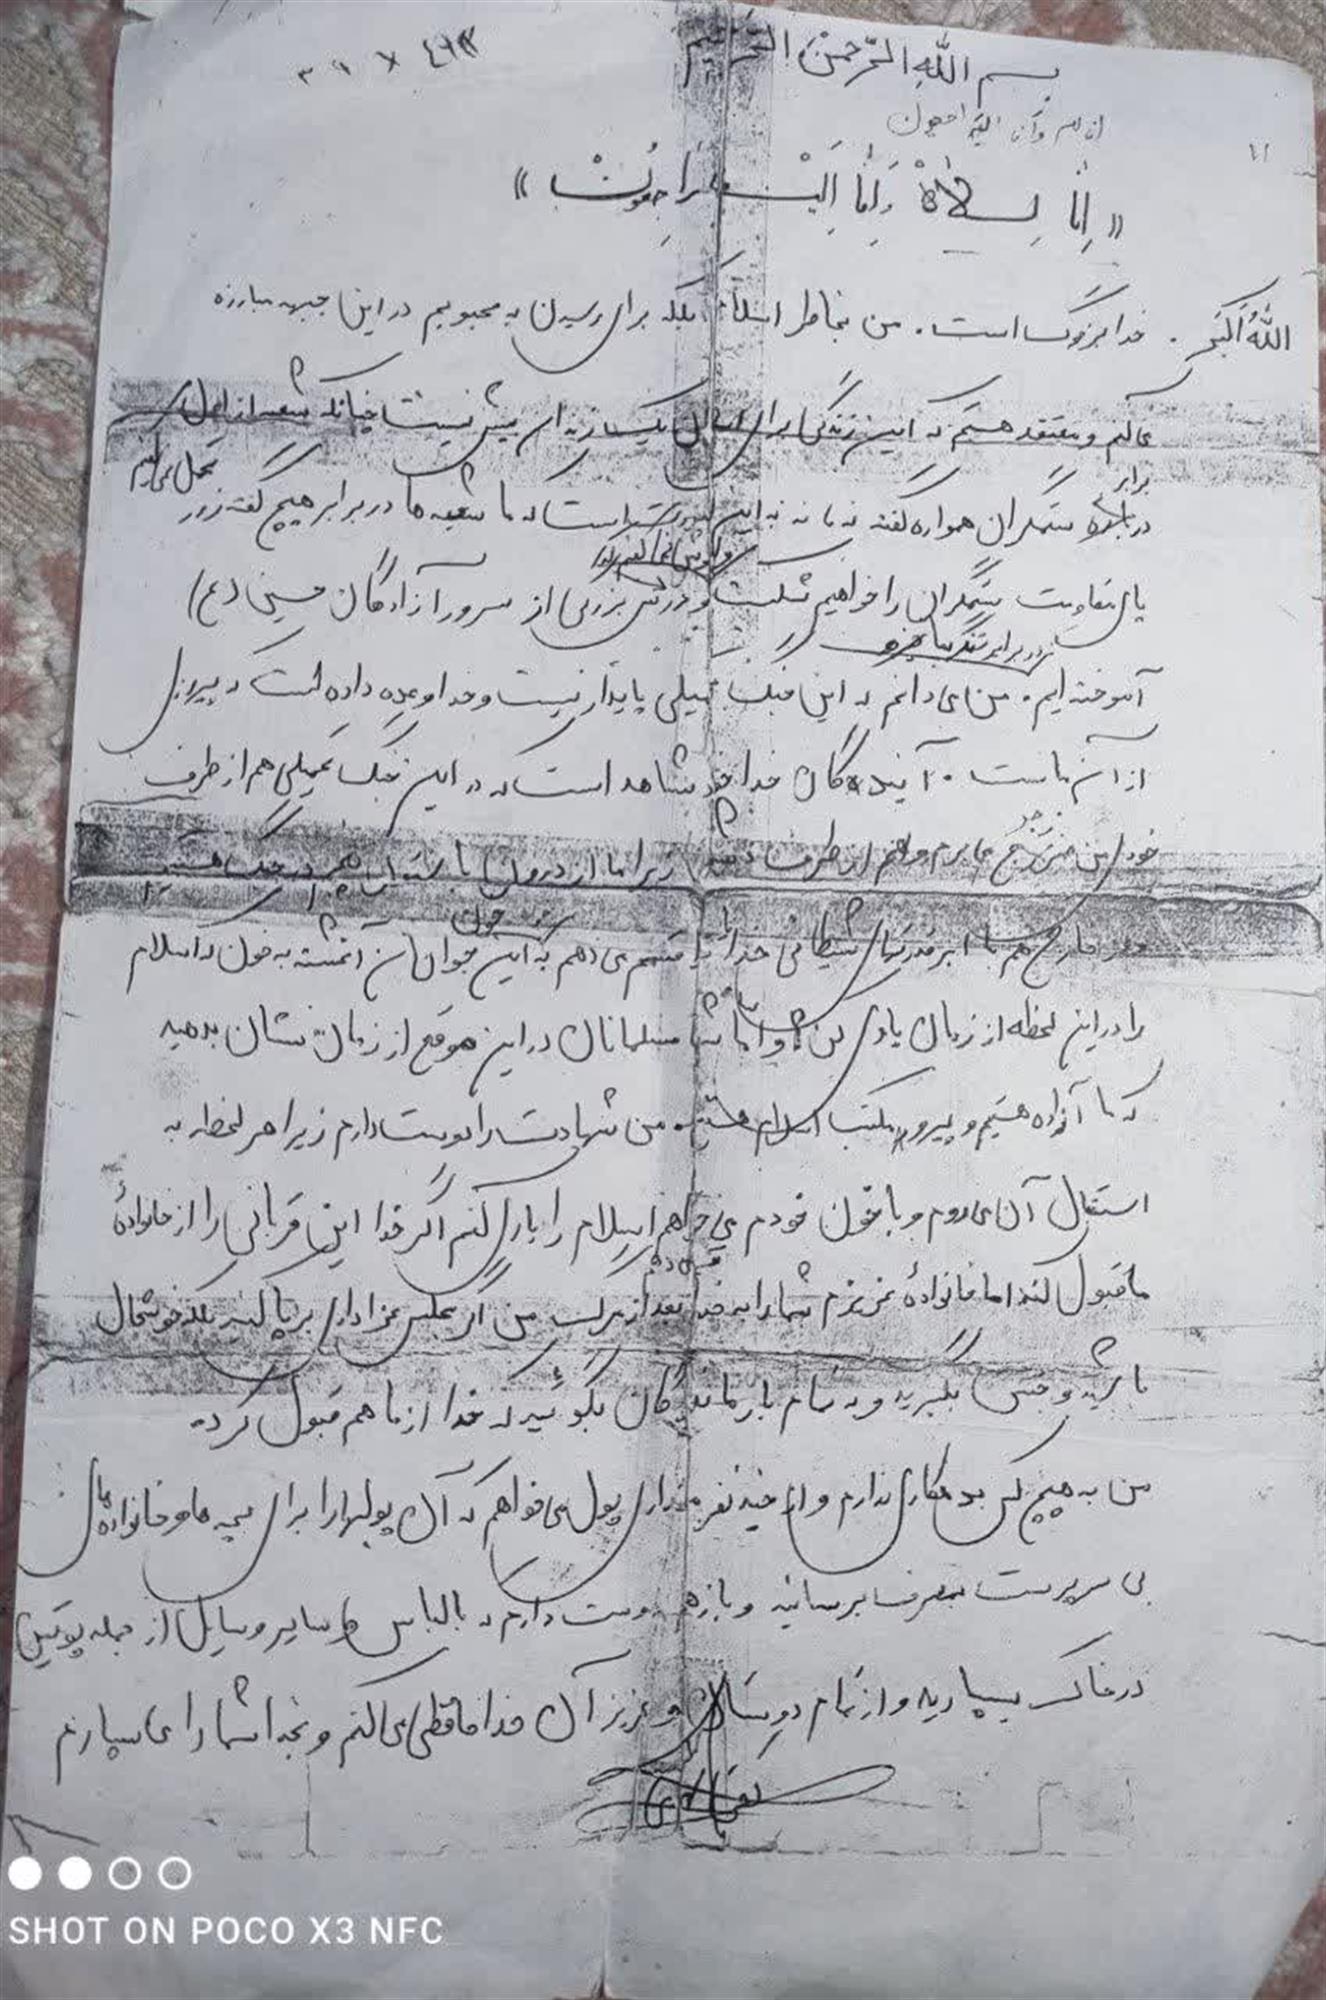 بسم الله الرحمن الرحیم
« اِنّا لِلّٰه وَاِنّا اِلَیْه راجِعُونْ »
اللهُ اَکبَر . خدا بزرگ است . من بخاطر اسلام بلکه برای رسیدن به محبوبم در این جبهه مبارزه
می‌کنم و معتقد هستم که این زندگی برای انسان یکبار زندان بیش نیست چنانکه شیعه از اول
برابر
در ستمگران همواره گفته نه ما نه به این است که ما شیعه ها در برابر هیچ گفته زور تحمل
پای مقاومت ستمگران را خواهیم شکست و درس بزرگی از سرور آزادگان حسین (ع)
آموخته ایم . من می دانم که این جنگ تحمیلی پایدار نیست و خدا وعده داده است که پیروزی
از آن ماست . آینده گان خدا خود شاهد است که در این جنگ تحمیلی هم از طرف
خود رنج می برم و هم از طرف زیرا ما از درون با هم در جنگ هستیم
و در خارج هم با ابرقدرتهای شیطانی خدایا قسم می دهم به این جوانان آغشته به خون که اسلام
را در این لحظه از زمان یاری کن و اما شما مسلمانان در این موقع از زمان نشان بدهید
که ما آزاده هستیم و پیرو مکتب اسلام هستیم . من شهادت را دوست دارم زیرا هر لحظه به
استقبال آن می روم و با خون خودم می خواهم اسلام را یاری کنم اگر خدا این قربانی را از خانوادهٔ
ما قبول کند اما خانوادهٔ عزیزم شما را به خدا بعد از مرگ من اگر مجلس عزاداری برپا کنید بلکه خوشحال
باشید و جشن بگیرید و به تمام بازماندگان بگوئید که خدا از ما هم قبول کرد
من به هیچ کس بدهکاری ندارم و از چند نفر مقداری پول می خواهم که آن پولها را برای بچه ها و خانواده های
بی سرپرست بمصرف برسانید و باز هم دوست دارم که با لباس و سایر وسایل از جمله پوتین
در خاک بسپارید و از تمام دوستان و عزیزان خداحافظی می کنم و بخدا شما را می سپارم
SHOT ON POCO X3 NFC